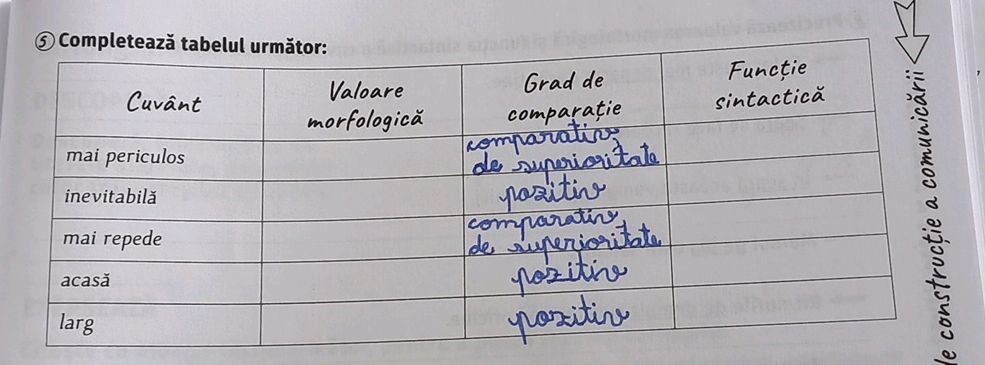 5 Completează tabelul următor:
Cuvânt
Valoare
morfologică
Grad de
comparație
Funcție
sintactică
mai periculos
comparativ
de superioritate
inevitabilă
pozitiv
mai repede
comparativ
de superioritate
acasă
pozitiv
larg
pozitiv
de construcție a comunicării